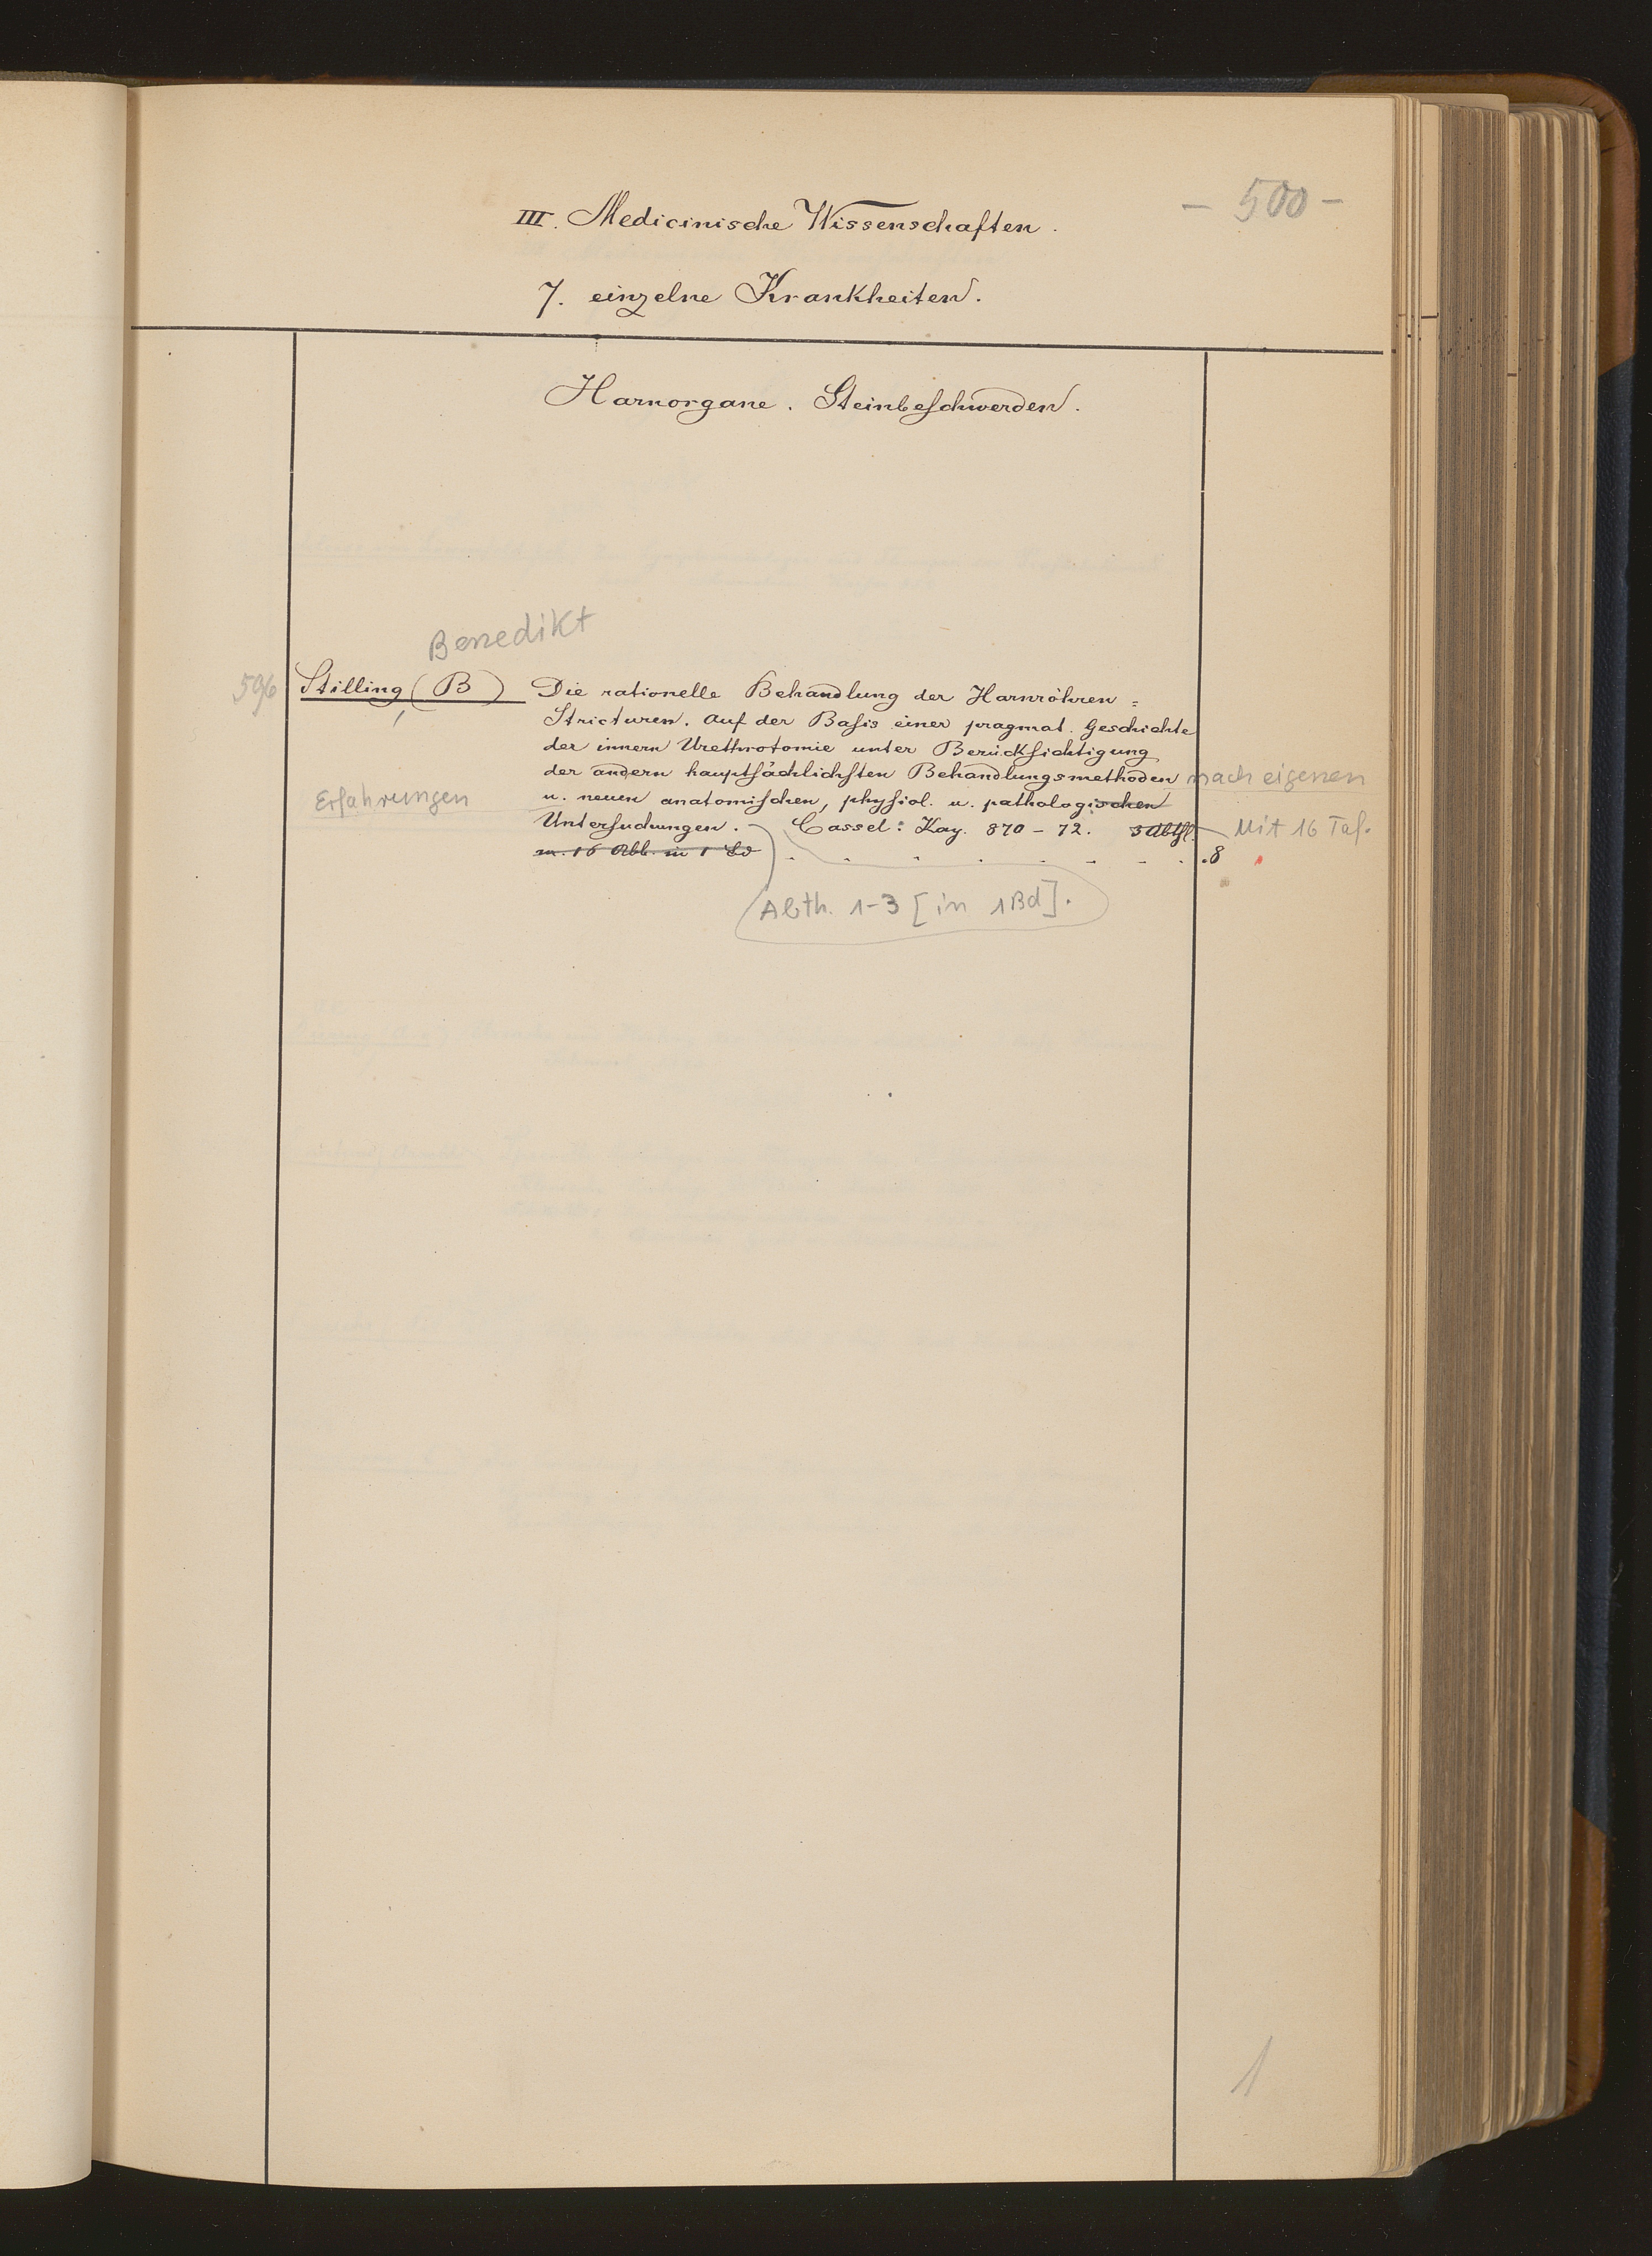 - 500 -
III. Medicinische Wissenschaften.
7. einzelne Krankheiten.
Harnorgane. Steinbeschwerden.
Benedikt
596 Stilling, (B) Die rationelle Behandlung der Harnröhren =
Stricturen. Auf der Basis einer pragmat. Geschichte
der innern Urethrotomie unter Berücksichtigung
der andern hauptsächlichsten Behandlungsmethoden nach eigenen
Erfahrungen u. neuen anatomischen, physiol. u. pathologischen
Untersuchungen. Cassel: Kay. 870 - 72. 3 Abthl. Mit 16 Taf.
m. 16 Abb. in 1 Bd . . . . . . . . 8
Abth. 1-3 [in 1 Bd].
1